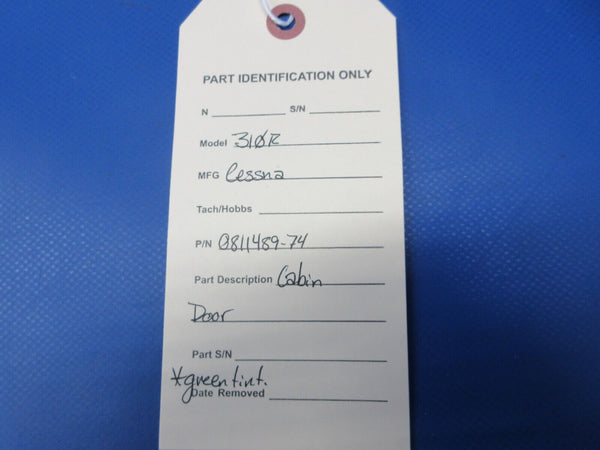 PART IDENTIFICATION ONLY
N ____________ S/N ____________
Model 310R
MFG Cessna
Tach/Hobbs ____________
P/N 0811489-74
Part Description Cabin
Door
Part S/N ____________
*green tint.
Date Removed ____________